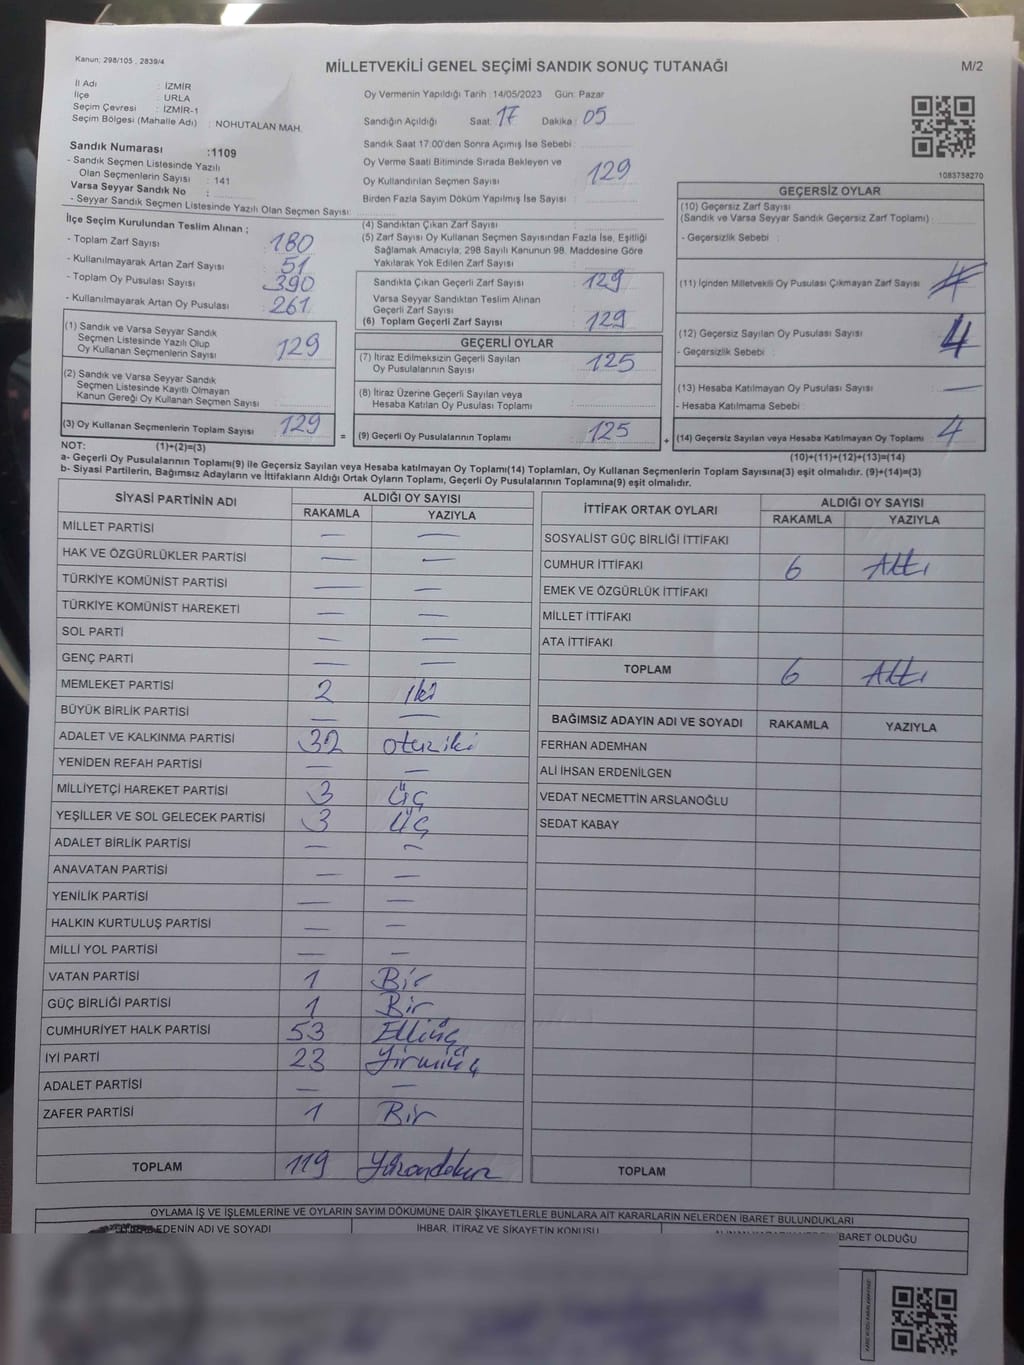 Kanun; 298/105 , 2839/4
MİLLETVEKİLİ GENEL SEÇİMİ SANDIK SONUÇ TUTANAĞI
M/2
İl Adı : İZMİR
İlçe : URLA
Seçim Çevresi : İZMİR-1
Seçim Bölgesi (Mahalle Adı) : NOHUTALAN MAH.
Sandık Numarası :1109
- Sandık Seçmen Listesinde Yazılı
Olan Seçmenlerin Sayısı : 141
Varsa Seyyar Sandık No :
- Seyyar Sandık Seçmen Listesinde Yazılı Olan Seçmen Sayısı:
Oy Vermenin Yapıldığı Tarih : 14/05/2023 Gün: Pazar
Sandığın Açıldığı Saat: 17 Dakika : 05
Sandık Saat 17:00'den Sonra Açımış İse Sebebi :
Oy Verme Saati Bitiminde Sırada Bekleyen ve
Oy Kullandırılan Seçmen Sayısı : 129
Birden Fazla Sayım Döküm Yapılmış İse Sayısı :
1083758270
İlçe Seçim Kurulundan Teslim Alınan ;
- Toplam Zarf Sayısı : 180
- Kullanılmayarak Artan Zarf Sayısı : 51
- Toplam Oy Pusulası Sayısı : 390
- Kullanılmayarak Artan Oy Pusulası : 261
(1) Sandık ve Varsa Seyyar Sandık
Seçmen Listesinde Yazılı Olup
Oy Kullanan Seçmenlerin Sayısı : 129
(2) Sandık ve Varsa Seyyar Sandık
Seçmen Listesinde Kayıtlı Olmayan
Kanun Gereği Oy Kullanan Seçmen Sayısı :
(3) Oy Kullanan Seçmenlerin Toplam Sayısı : 129
(4) Sandıktan Çıkan Zarf Sayısı :
(5) Zarf Sayısı Oy Kullanan Seçmen Sayısından Fazla İse, Eşitliği
Sağlamak Amacıyla; 298 Sayılı Kanunun 98. Maddesine Göre
Yakılarak Yok Edilen Zarf Sayısı :
Sandıkta Çıkan Geçerli Zarf Sayısı : 129
Varsa Seyyar Sandıktan Teslim Alınan
Geçerli Zarf Sayısı :
(6) Toplam Geçerli Zarf Sayısı : 129
GEÇERLİ OYLAR
(7) İtiraz Edilmeksizin Geçerli Sayılan
Oy Pusulalarının Sayısı : 125
(8) İtiraz Üzerine Geçerli Sayılan veya
Hesaba Katılan Oy Pusulası Toplamı :
= (9) Geçerli Oy Pusulalarının Toplamı : 125 +
GEÇERSİZ OYLAR
(10) Geçersiz Zarf Sayısı
(Sandık ve Varsa Seyyar Sandık Geçersiz Zarf Toplamı) :
- Geçersizlik Sebebi :
(11) İçinden Milletvekili Oy Pusulası Çıkmayan Zarf Sayısı :
(12) Geçersiz Sayılan Oy Pusulası Sayısı : 4
- Geçersizlik Sebebi :
(13) Hesaba Katılmayan Oy Pusulası Sayısı : —
- Hesaba Katılmama Sebebi :
(14) Geçersiz Sayılan veya Hesaba Katılmayan Oy Toplamı : 4
NOT: (1)+(2)=(3)
(10)+(11)+(12)+(13)=(14)
a- Geçerli Oy Pusulalarının Toplamı(9) ile Geçersiz Sayılan veya Hesaba katılmayan Oy Toplamı(14) Toplamları, Oy Kullanan Seçmenlerin Toplam Sayısına(3) eşit olmalıdır. (9)+(14)=(3)
b- Siyasi Partilerin, Bağımsız Adayların ve İttifakların Aldığı Ortak Oyların Toplamı, Geçerli Oy Pusulalarının Toplamına(9) eşit olmalıdır.
SİYASİ PARTİNİN ADI ALDIĞI OY SAYISI
RAKAMLA YAZIYLA
MİLLET PARTİSİ — —
HAK VE ÖZGÜRLÜKLER PARTİSİ — —
TÜRKİYE KOMÜNİST PARTİSİ — —
TÜRKİYE KOMÜNİST HAREKETİ — —
SOL PARTİ — —
GENÇ PARTİ — —
MEMLEKET PARTİSİ 2 iki
BÜYÜK BİRLİK PARTİSİ — —
ADALET VE KALKINMA PARTİSİ 32 otuziki
YENİDEN REFAH PARTİSİ — —
MİLLİYETÇİ HAREKET PARTİSİ 3 Üç
YEŞİLLER VE SOL GELECEK PARTİSİ 3 Üç
ADALET BİRLİK PARTİSİ — —
ANAVATAN PARTİSİ — —
YENİLİK PARTİSİ — —
HALKIN KURTULUŞ PARTİSİ — —
MİLLİ YOL PARTİSİ — —
VATAN PARTİSİ 1 Bir
GÜÇ BİRLİĞİ PARTİSİ 1 Bir
CUMHURİYET HALK PARTİSİ 53 Elliüç
İYİ PARTİ 23 Yirmiüç
ADALET PARTİSİ — —
ZAFER PARTİSİ 1 Bir
TOPLAM 119 Yüzondokuz
İTTİFAK ORTAK OYLARI ALDIĞI OY SAYISI
RAKAMLA YAZIYLA
SOSYALİST GÜÇ BİRLİĞİ İTTİFAKI
CUMHUR İTTİFAKI 6 Altı
EMEK VE ÖZGÜRLÜK İTTİFAKI
MİLLET İTTİFAKI
ATA İTTİFAKI
TOPLAM 6 Altı
BAĞIMSIZ ADAYIN ADI VE SOYADI RAKAMLA YAZIYLA
FERHAN ADEMHAN
ALİ İHSAN ERDENİLGEN
VEDAT NECMETTİN ARSLANOĞLU
SEDAT KABAY
TOPLAM
OYLAMA İŞ VE İŞLEMLERİNE VE OYLARIN SAYIM DÖKÜMÜNE DAİR ŞİKAYETLERLE BUNLARA AİT KARARLARIN NELERDEN İBARET BULUNDUKLARI
EDENİN ADI VE SOYADI İHBAR, İTİRAZ VE ŞİKAYETİN KONUSU BARET OLDUĞU